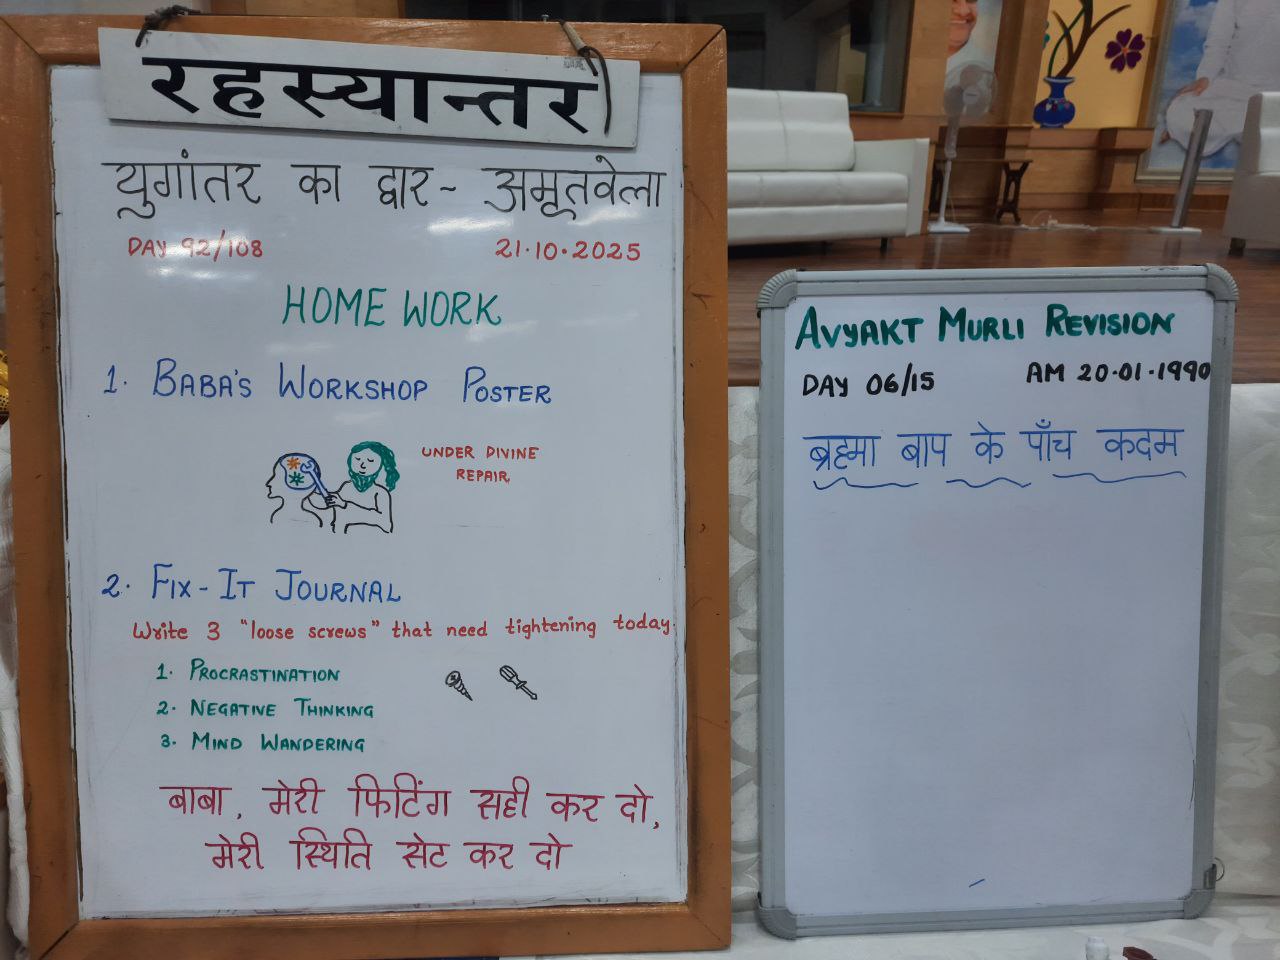 रहस्यान्तर
युगांतर का द्वार- अमृतवेला
DAY 92/108 21.10.2025
HOME WORK
1. BABA'S WORKSHOP POSTER
UNDER DIVINE
REPAIR
2. FIX-IT JOURNAL
Write 3 "loose screws" that need tightening today.
1. PROCRASTINATION
2. NEGATIVE THINKING
3. MIND WANDERING
बाबा, मेरी फिटिंग सही कर दो,
मेरी स्थिति सेट कर दो
AVYAKT MURLI REVISION
DAY 06/15 AM 20.01.1990
ब्रह्मा बाप के पाँच कदम